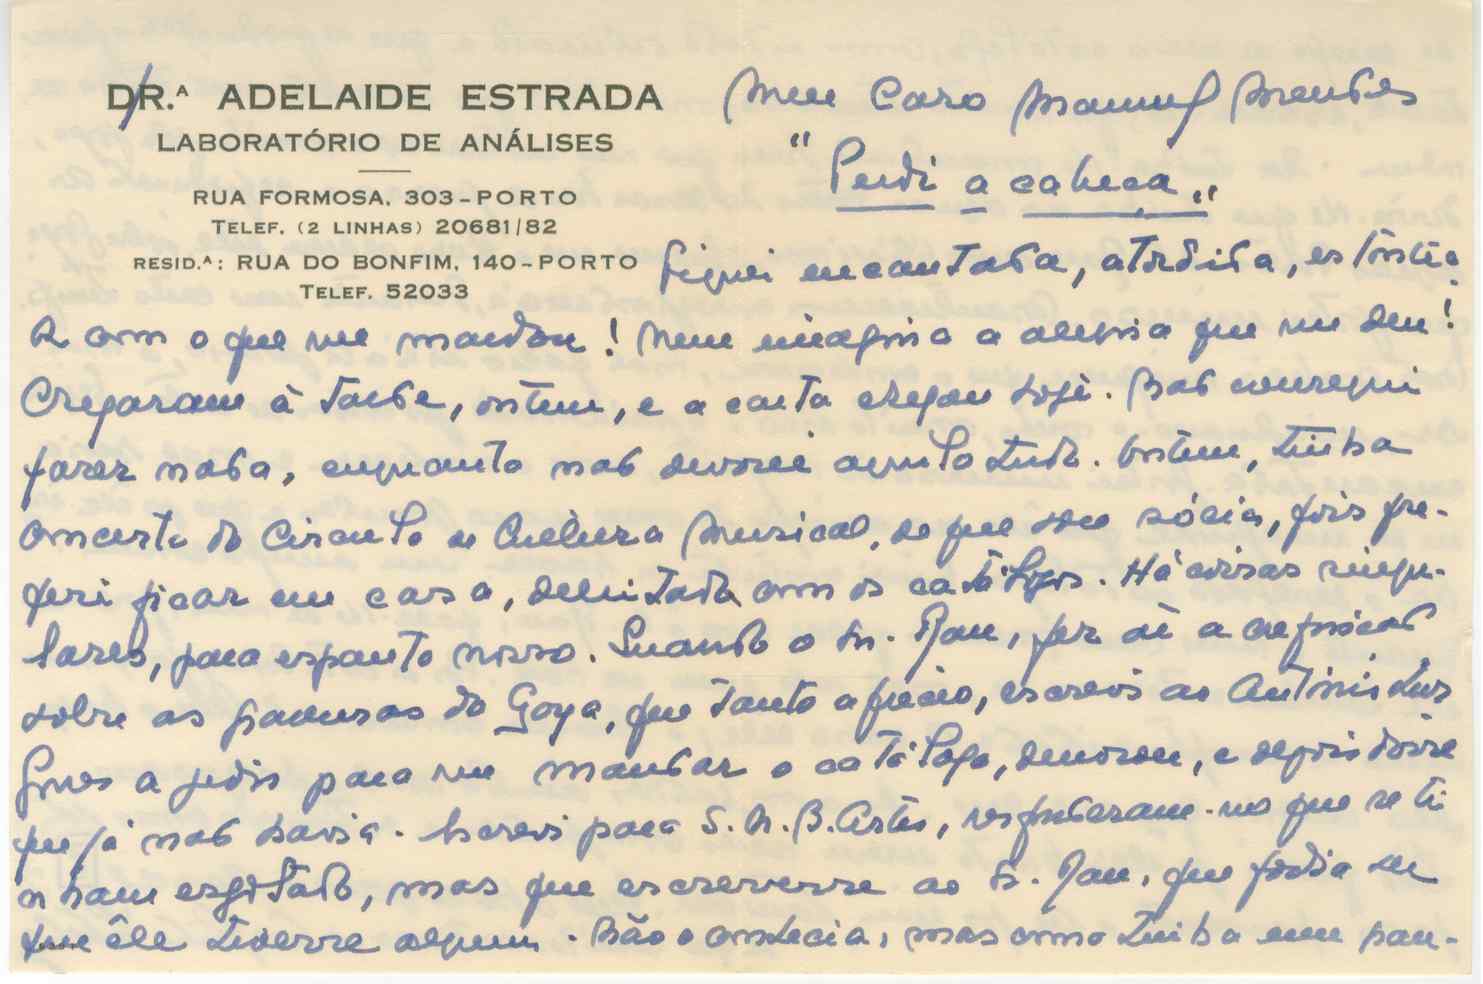 DR.ª ADELAIDE ESTRADA
LABORATÓRIO DE ANÁLISES
RUA FORMOSA, 303-PORTO
TELEF. (2 LINHAS) 20681/82
RESID.ª: RUA DO BONFIM, 140-PORTO
TELEF. 52033
Meu Caro Manuel Mendes
"Perdi a cabeça"
Fiquei encantada, atordida, estontea-
da com o que me mandou! Nem imagina a alegria que me deu!
Chegaram à tarde, ontem, e a carta chegou hoje. Não consegui
fazer nada, enquanto não devorei aquilo tudo. Ontem, tinha
concerto do Circulo de Cultura Musical, de que sou sócia, pois pre-
feri ficar em casa, deliciada com os catálogos. Há coisas singu-
lares, para espanto nosso. Quando o Sr. Rau, fez aí a exposição
sobre as gravuras do Goya, que tanto aprecio, escrevi ao António Luis
Gomes a pedir para me mandar o catálogo, demorou, e depois disse
que já não havia. Escrevi para S. N. B. Artes, responderam-me que se ti
nham esgotado, mas que escrevesse ao Sr. Rau, que podia ser
que êle tivesse algum. Não o conhecia, mas como tinha um pau-